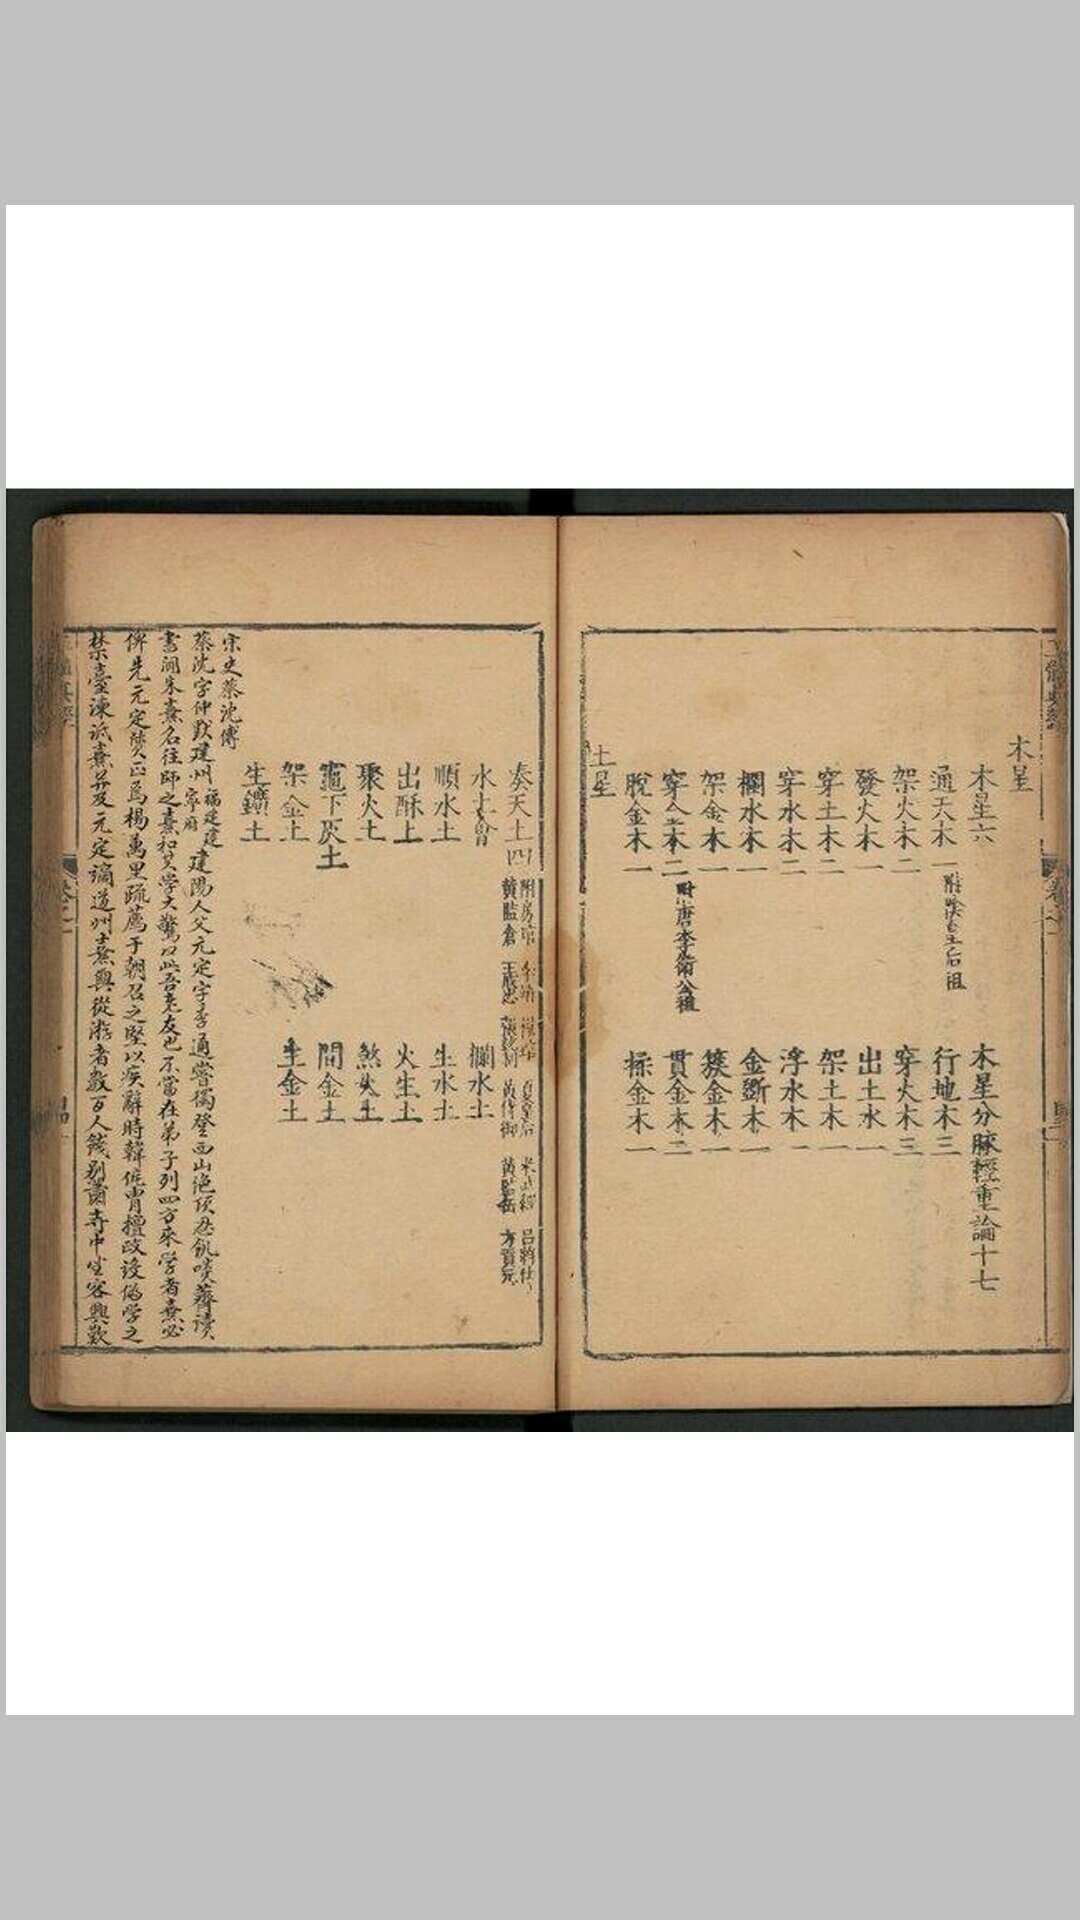 木星
木星六
木星分脉輕重論十七
通天木一
行地木三
架火木二
穿火木三
發火木一
出土水一
穿土木二
架土木一
穿水木二
浮水木一
欄水木一
金斷木一
架金木一
簇金木一
穿金木二 附唐李衛公祖
貫金木二
脫金木一
揉金木一
土星
奏天土四
水土
欄水土
順水土
生水土
出酥土
火生土
聚火土
煞火土
竈下灰土
間金土
架金土
生金土
生鑛土
宋史蔡沈傳
蔡沈字仲默建州福建建寧府建陽人父元定字季通嘗獨登西山絶頂忍飢啖薺讀
書聞朱熹名往師之熹和其學大驚曰此吾老友也不當在弟子列四方來學者熹必
俾先元定質正焉楊萬里疏薦于朝召之堅以疾辭時韓侂胄擅政設偽學之
禁臺諫詆熹并及元定謫道州熹與從游者數百人餞別蕭寺中坐客興歎